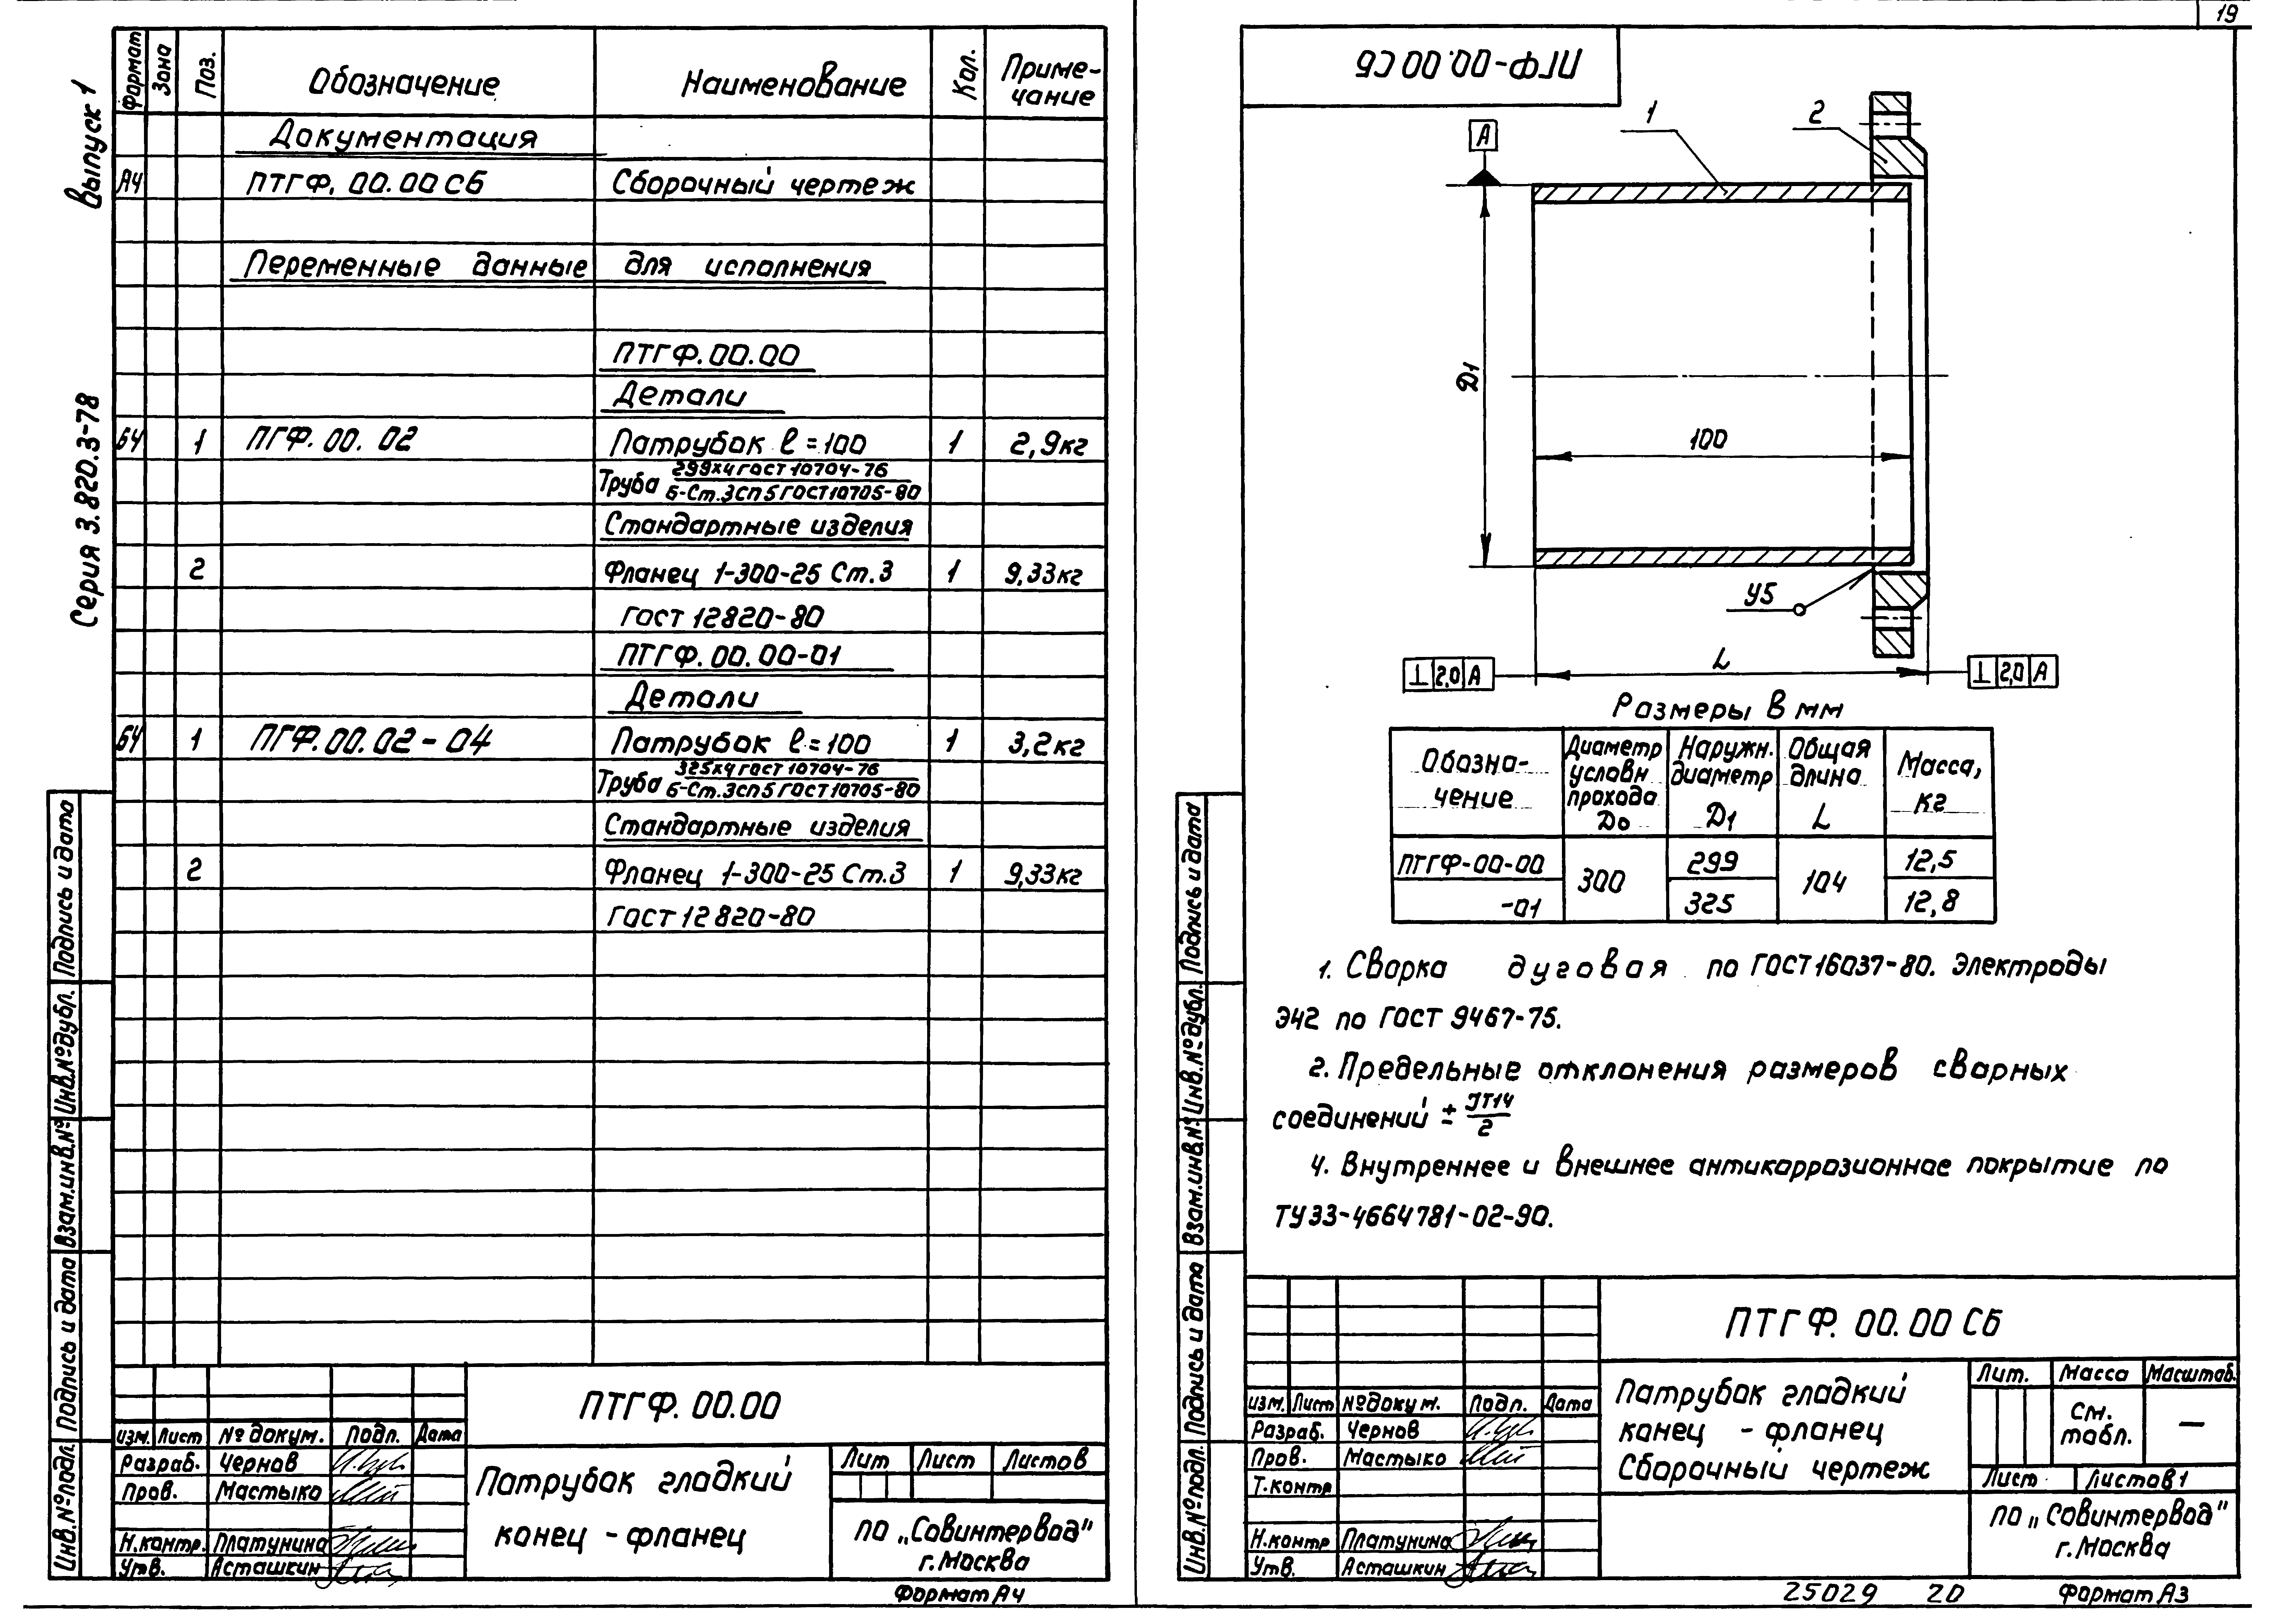 19
Выпуск 1
Серия 3.820.3-78
Формат Зона Поз. Обозначение Наименование Кол. Приме-
чание
Документация
А4 ПТГФ. 00.00 СБ Сборочный чертеж
Переменные данные для исполнения
ПТГФ.00.00
Детали
БЧ 1 ПГФ.00. 02 Патрубок ℓ=100 1 2,9кг
Труба 299х4 ГОСТ 10704-76
Б-Ст.3сп5 ГОСТ 10705-80
Стандартные изделия
2 Фланец 1-300-25 Ст.3 1 9,33кг
ГОСТ 12820-80
ПТГФ.00.00-01
Детали
БЧ 1 ПГФ.00.02-04 Патрубок ℓ=100 1 3,2кг
Труба 325х4 ГОСТ 10704-76
Б-Ст.3сп5 ГОСТ 10705-80
Стандартные изделия
2 Фланец 1-300-25 Ст.3 1 9,33кг
ГОСТ 12820-80
Подпись и дата
Инв.№дубл.
Взам.инв.№
Подпись и дата
Инв.№подл.
ПТГФ.00.00
изм. Лист № докум. подп. Дата
Разраб. Чернов
Пров. Мастыко
Н.контр. Платунина
Утв. Асташкин
Патрубок гладкий
конец - фланец
Лит Лист Листов
ПО „Совинтервод"
г.Москва
Формат А4
ПГФ-00.00 СБ
1
2
А
D1
100
У5
L
⊥ 2,0 А
⊥ 2,0 А
Размеры в мм
Обозна-
чение
Диаметр
условн
прохода
Dо
Наружн.
диаметр
D1
Общая
длина
L
Масса,
кг
ПТГФ-00-00 300 299 104 12,5
-01 325 12,8
1. Сварка дуговая по ГОСТ 16037-80. Электроды
Э42 по ГОСТ 9467-75.
2. Предельные отклонения размеров сварных
соединений ± JT14/2
4. Внутреннее и внешнее антикоррозионное покрытие по
ТУ33-4664781-02-90.
Подпись и дата
Инв.№дубл.
Взам.инв.№
Подпись и дата
Инв.№подл.
ПТГФ. 00.00 СБ
изм. Лист №докум. Подп. Дата
Разраб. Чернов
Пров. Мастыко
Т.контр
Н.контр Платунина
Утв. Асташкин
Патрубок гладкий
конец - фланец
Сборочный чертеж
Лит. Масса Масштаб.
см.
табл.
—
Лист Листов 1
ПО „Совинтервод"
г.Москва
25029 20 Формат А3